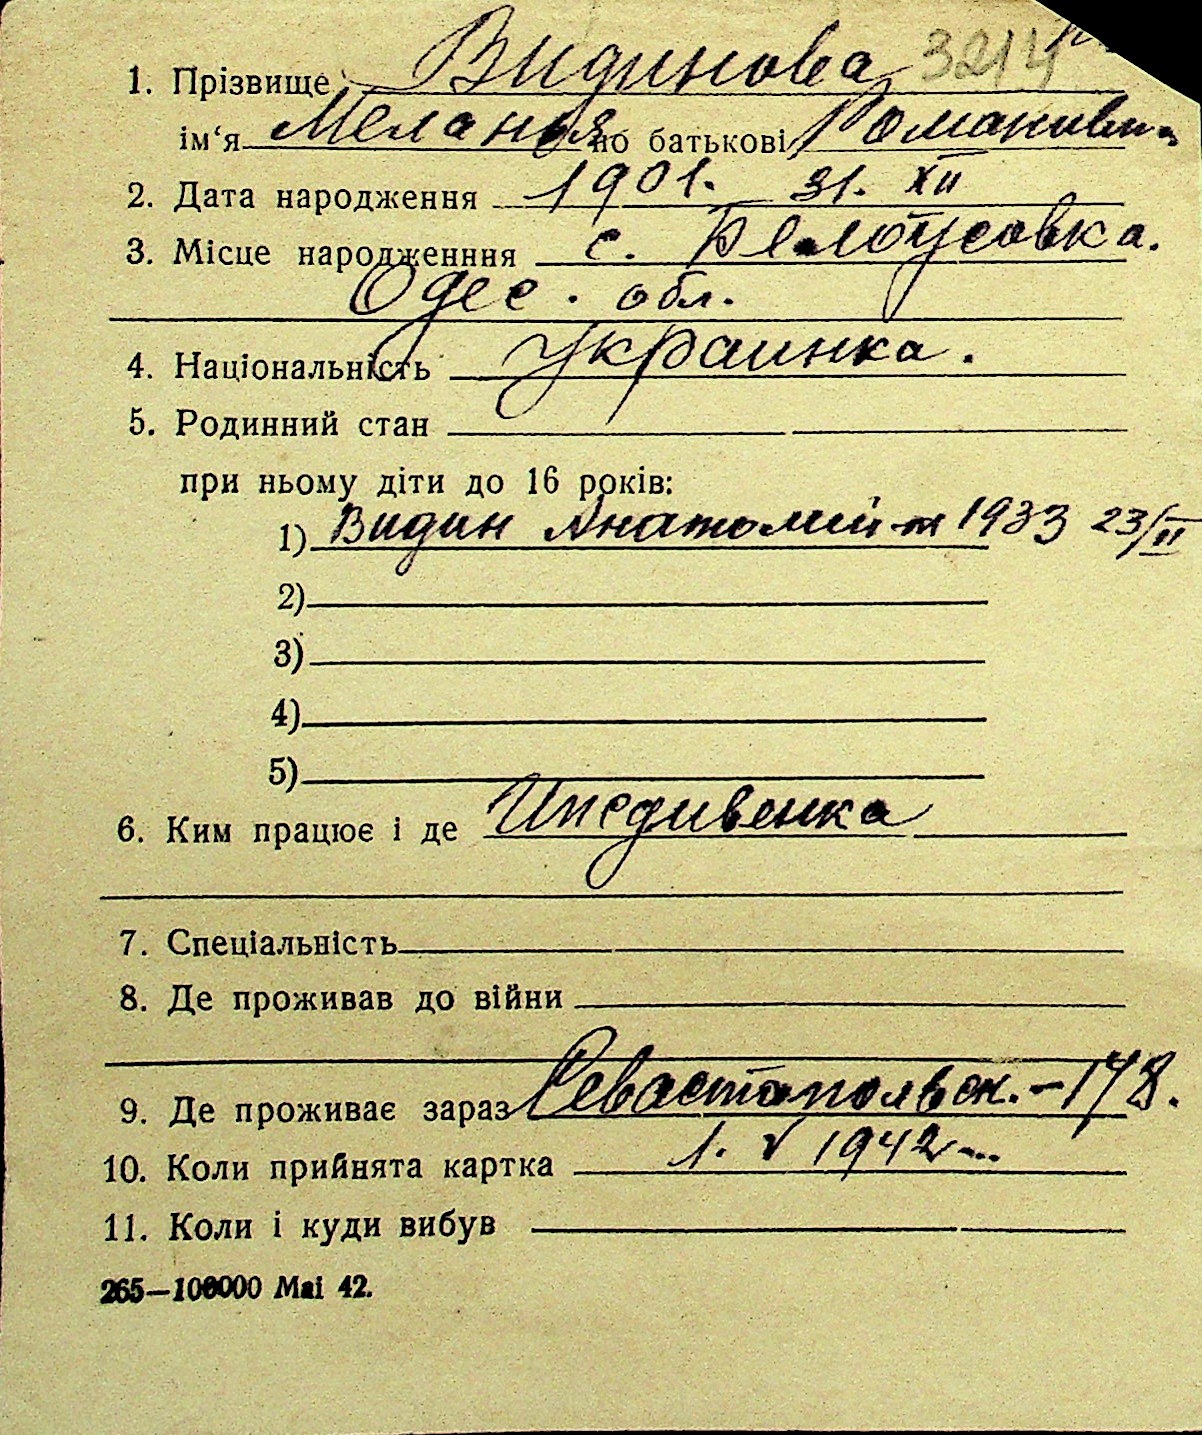 1. Прізвище Видинова 3214
ім‘я Меланья по батькові Романовн
2. Дата народження 1901. 31. XII
3. Місце народженння с. Белоусовка.
Одес. обл.
4. Національність Украинка.
5. Родинний стан
при ньому діти до 16 років:
1) Видин Анатолий 1933 23/II
2)
3)
4)
5)
6. Ким працює і де Иждивенка
7. Спеціальність
8. Де проживав до війни
9. Де проживає зараз Севастопольск. – 178.
10. Коли прийнята картка 1. V 1942
11. Коли і куди вибув
265—100000 Маі 42.